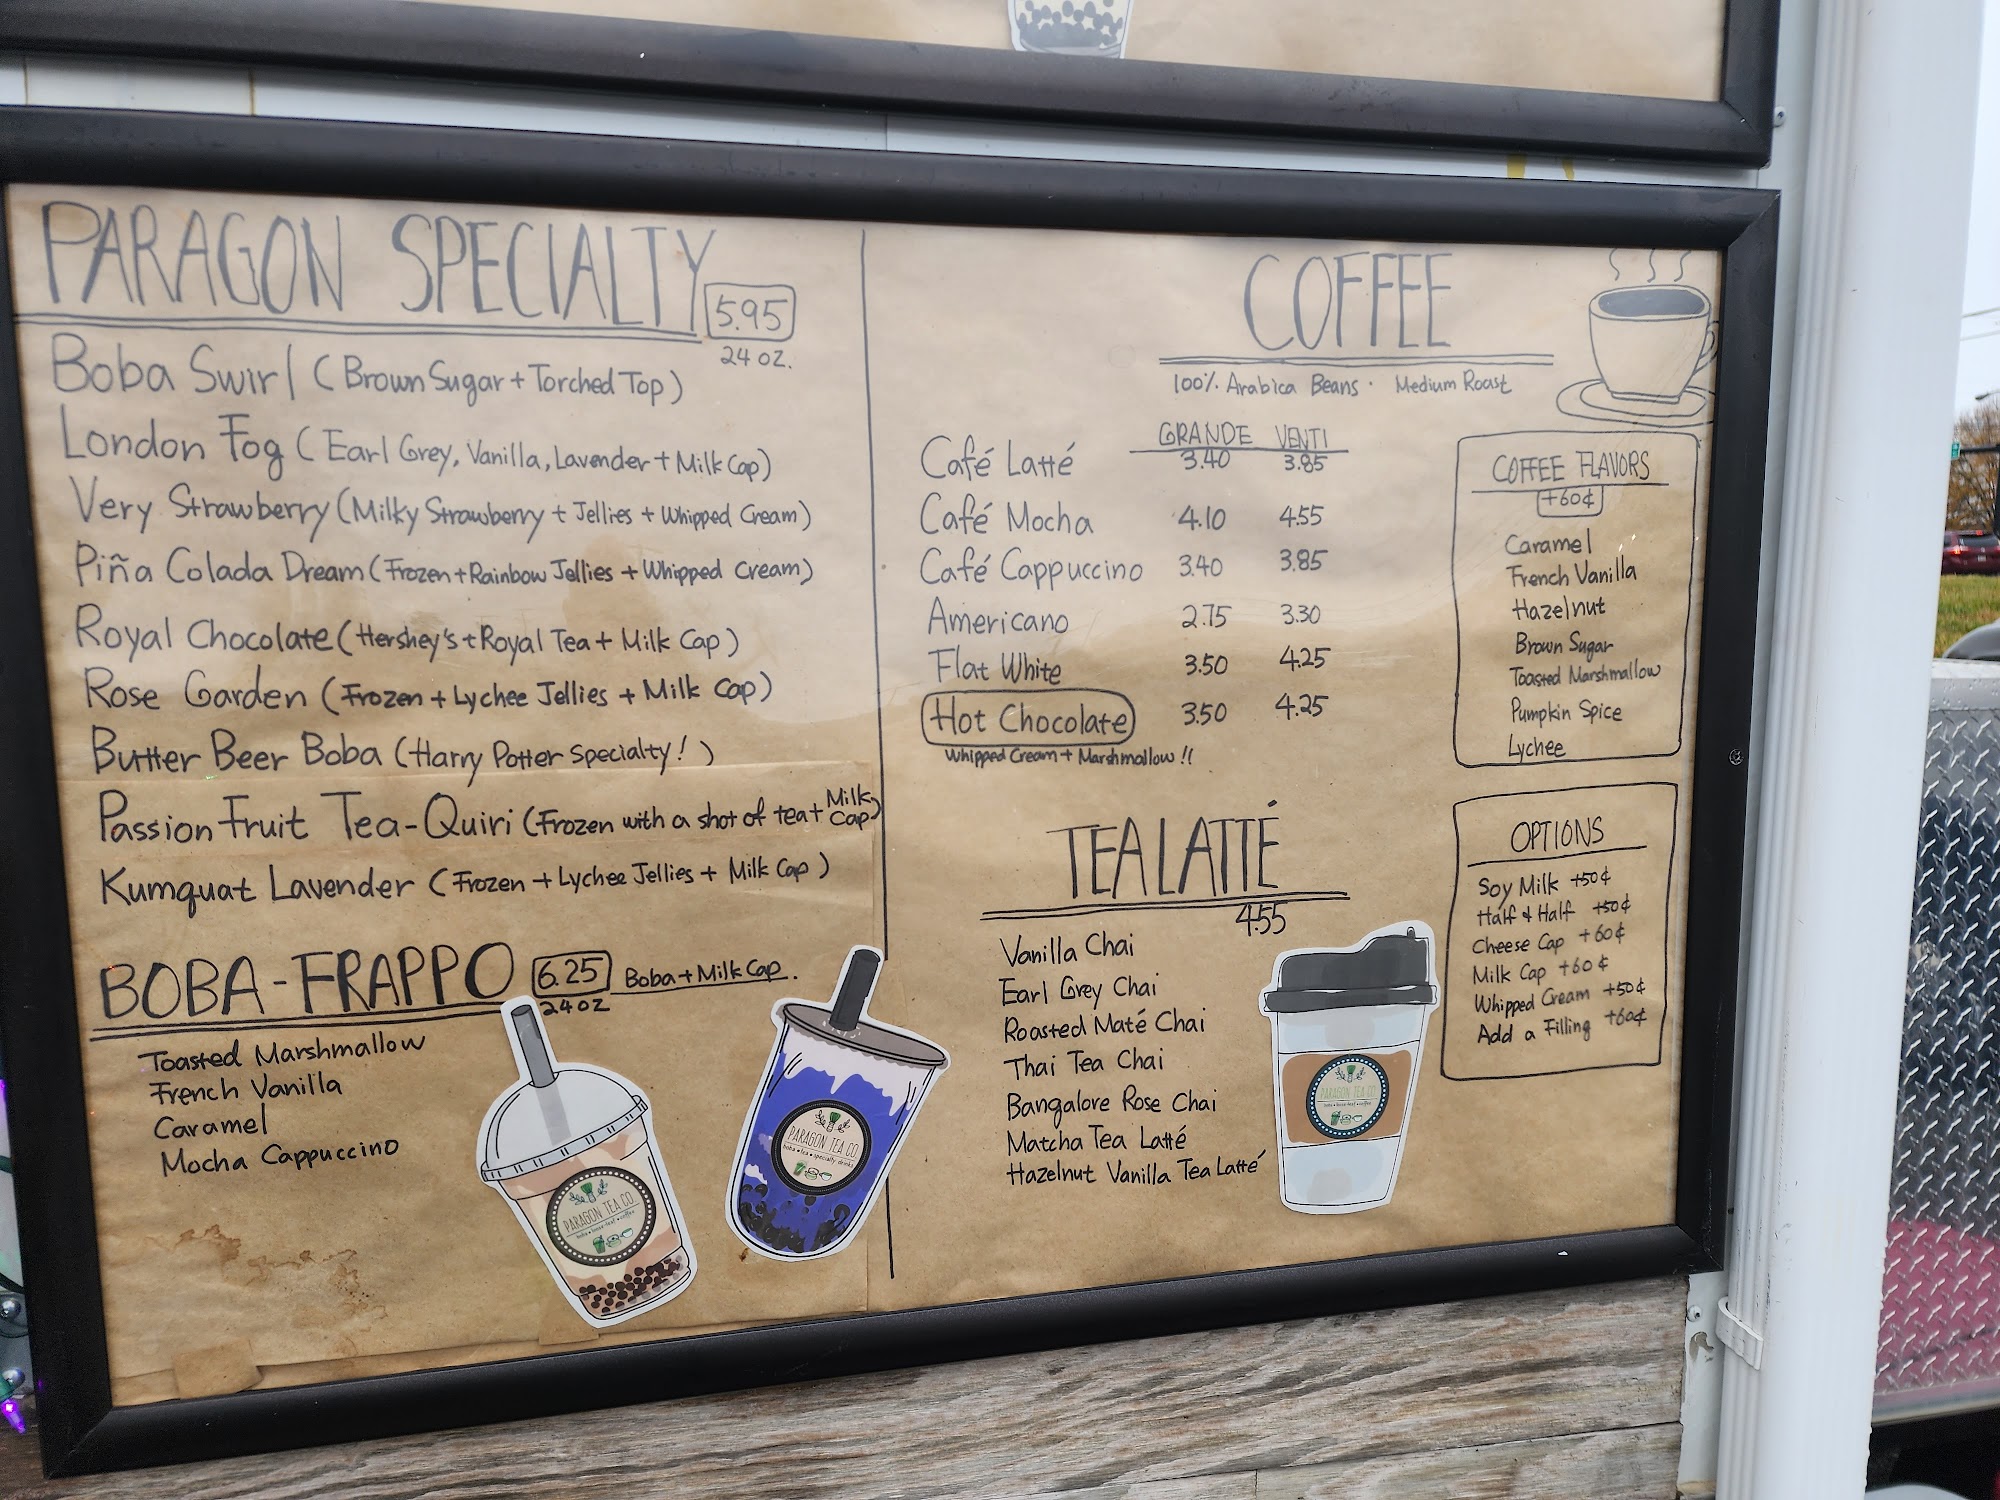 PARAGON SPECIALTY 5.95
24 OZ.
Boba Swirl (Brown Sugar + Torched Top)
London Fog (Earl Grey, Vanilla, Lavender + Milk Cap)
Very Strawberry (Milky Strawberry + Jellies + Whipped Cream)
Piña Colada Dream (Frozen + Rainbow Jellies + Whipped Cream)
Royal Chocolate (Hershey's + Royal Tea + Milk Cap)
Rose Garden (Frozen + Lychee Jellies + Milk Cap)
Butter Beer Boba (Harry Potter Specialty!)
Passion Fruit Tea-Quiri (Frozen with a shot of tea + Milk Cap)
Kumquat Lavender (Frozen + Lychee Jellies + Milk Cap)
BOBA-FRAPPO 6.25 Boba + Milk Cap.
24 OZ
Toasted Marshmallow
French Vanilla
Caramel
Mocha Cappuccino
PARAGON TEA CO.
boba • loose-leaf • coffee
PARAGON TEA CO.
boba • tea • specialty drinks
COFFEE
100% Arabica Beans · Medium Roast
GRANDE VENTI
Café Latté 3.40 3.85
Café Mocha 4.10 4.55
Café Cappuccino 3.40 3.85
Americano 2.75 3.30
Flat White 3.50 4.25
Hot Chocolate 3.50 4.25
Whipped Cream + Marshmallow!!
TEA LATTÉ
4.55
Vanilla Chai
Earl Grey Chai
Roasted Maté Chai
Thai Tea Chai
Bangalore Rose Chai
Matcha Tea Latté
Hazelnut Vanilla Tea Latté
PARAGON TEA CO.
boba • loose-leaf • coffee
COFFEE FLAVORS
+60¢
Caramel
French Vanilla
Hazelnut
Brown Sugar
Toasted Marshmallow
Pumpkin Spice
Lychee
OPTIONS
Soy Milk +50¢
Half & Half +50¢
Cheese Cap +60¢
Milk Cap +60¢
Whipped Cream +50¢
Add a Filling +60¢